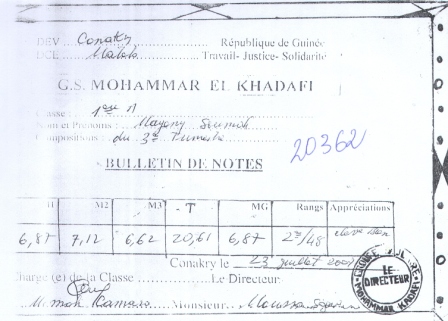 DEV... Conakry République de Guinée
DCE... Matoto Travail- Justice- Solidarité
G.S. MOHAMMAR EL KHADAFI
Classe : 1ère A
Nom et Prénoms : Soumah
Compositions : du 3è Trimestre
20362
BULLETIN DE NOTES
M1 M2 M3 T MG Rangs Appréciations
6,87 7,12 6,62 20,61 6,87 2è/48
Conakry le 23 juillet
Charge (e) de la Classe Le Directeur
Camara Monsieur Moussa
LE DIRECTEUR